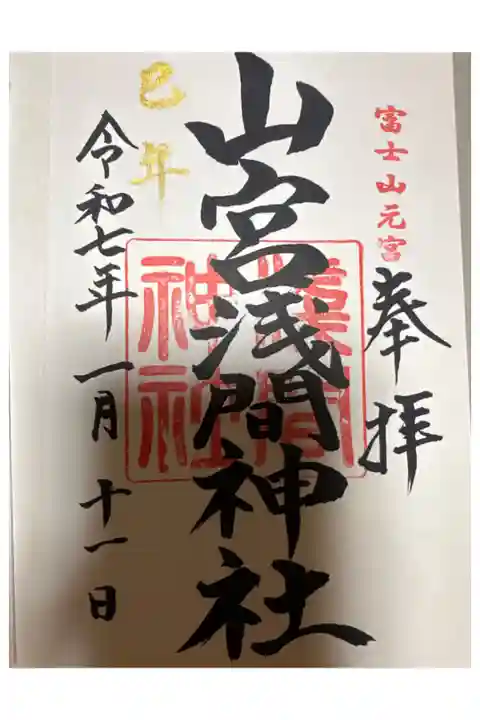 富士山元宮
奉拝
山宮浅間神社
浅間
神社
巳年
令和七年一月十一日